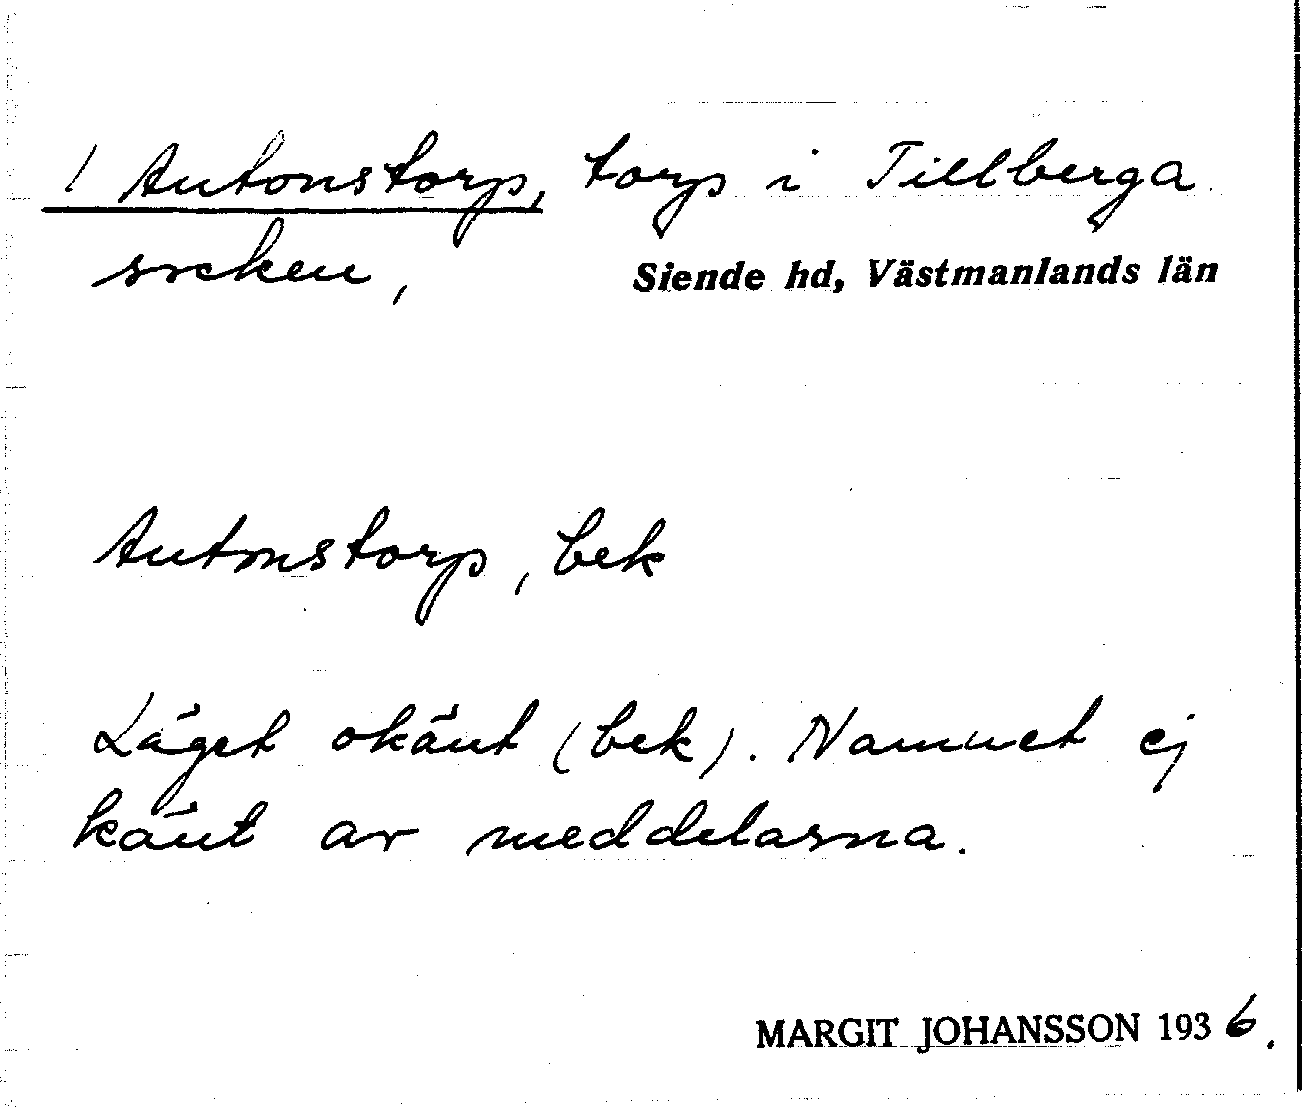 1 Antonstorp, torp i Tillberga
socken, Siende hd, Västmanlands län
Antonstorp, bek
Läget okänt (bek). Namnet ej
känt av meddelarna.
MARGIT JOHANSSON 1936.